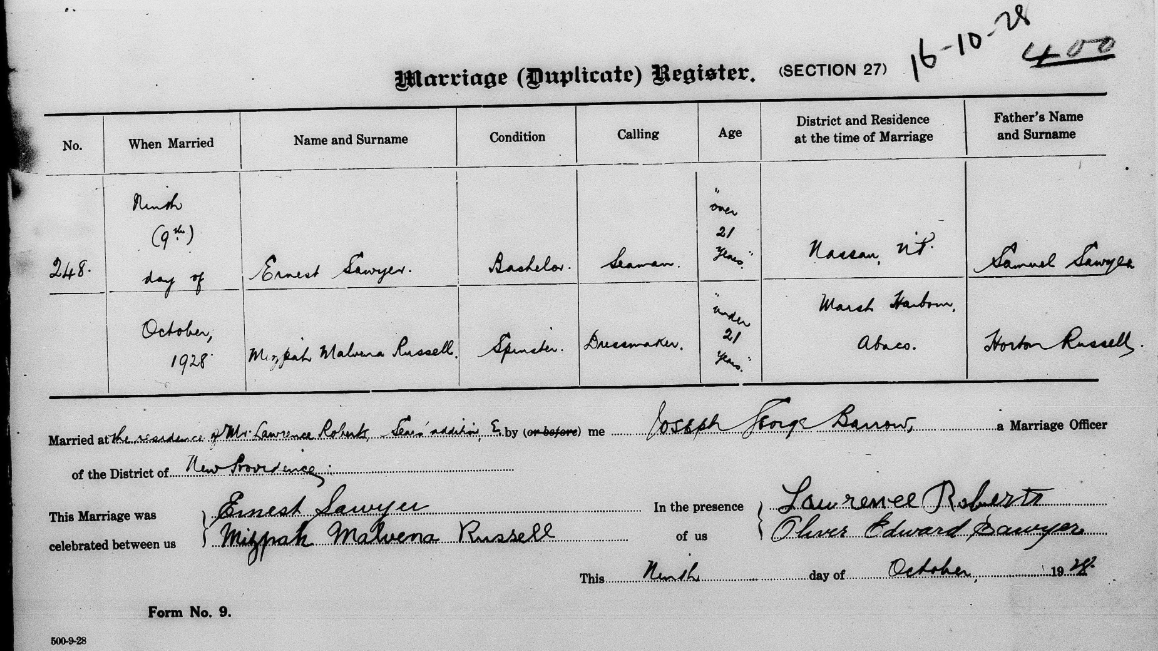 16-10-28
400
Marriage (Duplicate) Register. (SECTION 27)
No. When Married Name and Surname Condition Calling Age District and Residence at the time of Marriage Father's Name and Surname
248. Ninth (9th) day of October, 1928
Ernest Sawyer. Bachelor. Seaman. "over 21 years." Nassau, N.P. Samuel Sawyer
Mizpah Malvena Russell. Spinster. Dressmaker. "under 21 years." Marsh Harbour, Abaco. Horton Russell.
Married at the residence of Mr. Lawrence Roberts, Sears' addition, E. by (or before) me Joseph George Barrow, a Marriage Officer
of the District of New Providence.
This Marriage was celebrated between us } Ernest Sawyer
Mizpah Malvena Russell
In the presence of us { Lawrence Roberts
Oliver Edward Sawyer
This Ninth day of October, 1928.
Form No. 9.
500-9-28